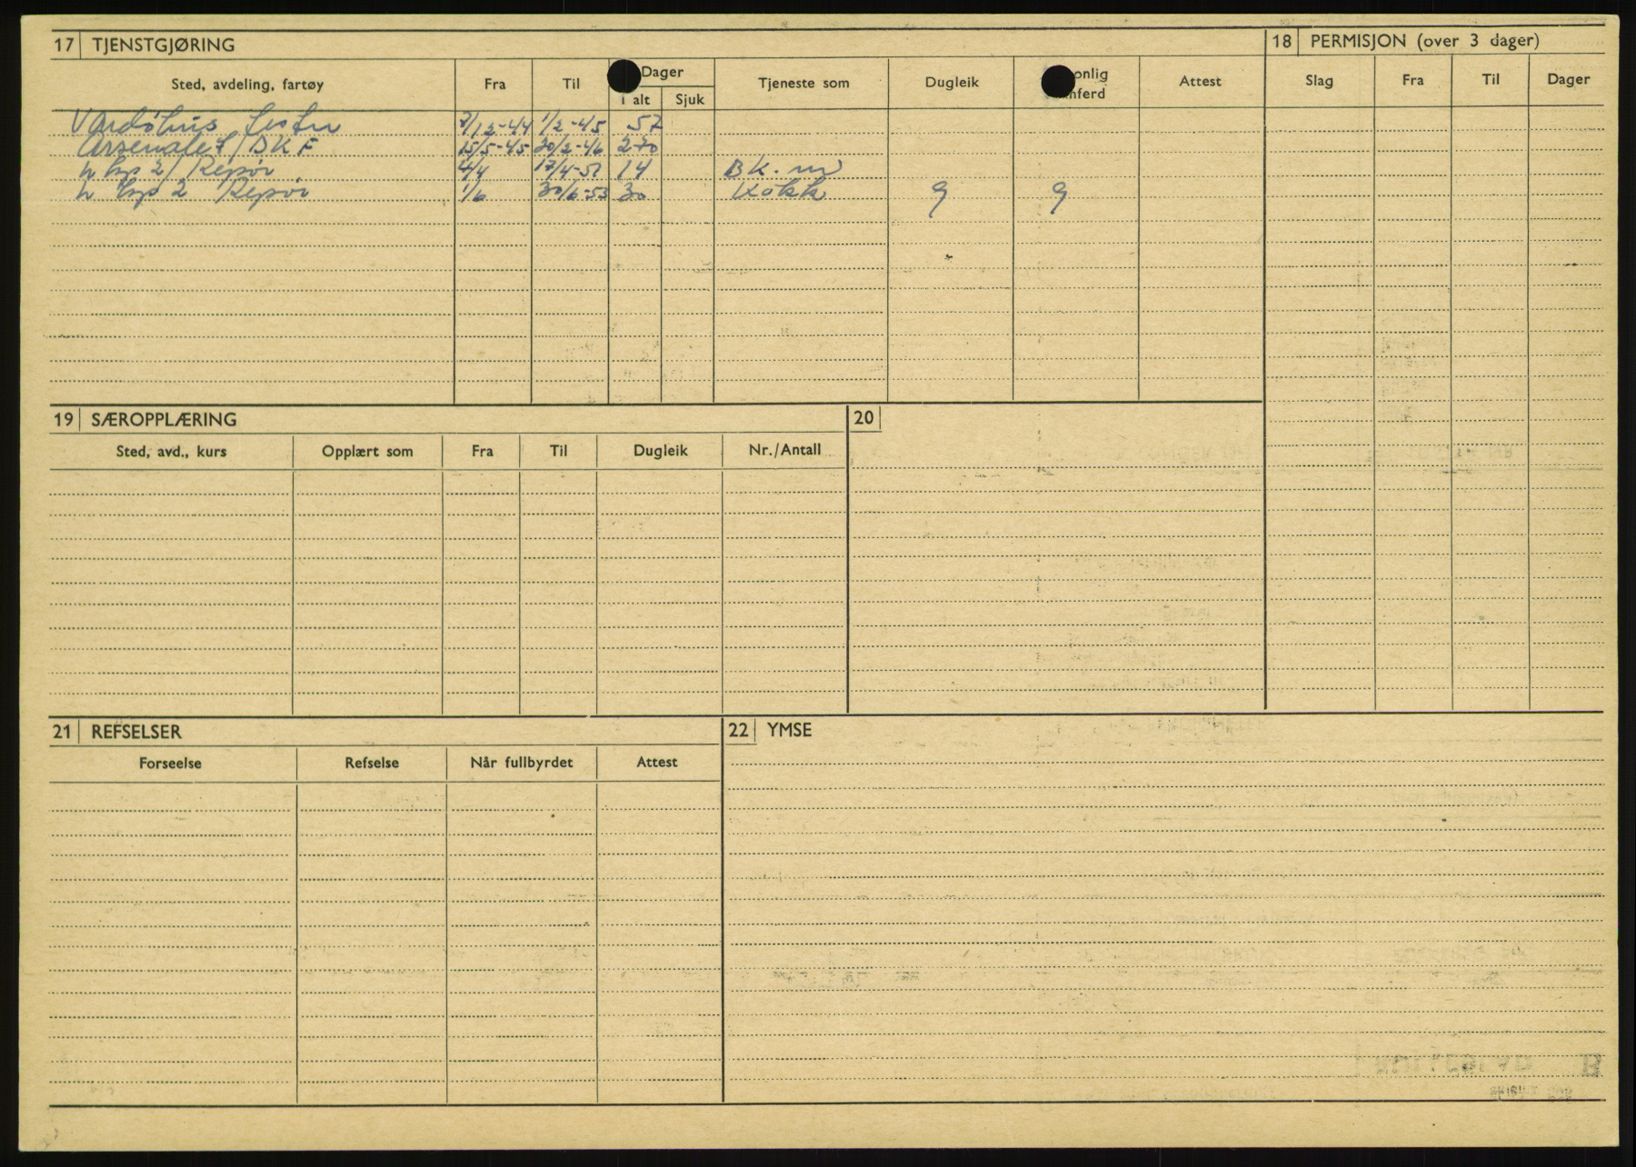 17 TJENSTGJØRING
18 PERMISJON (over 3 dager)
Sted, avdeling, fartøy Fra Til Dager Tjeneste som Dugleik onlig Attest Slag Fra Til Dager
I alt Sjuk nferd
Vardøhus 7/12-44 1/2-45 57
Arsenalet / BKF 15/5-45 20/2-46 270
2 / Repøv 4/4 17/4-51 14 BK.
2 Repøv 1/6 30/6-53 30 Kokk g g
19 SÆROPPLÆRING
20
Sted, avd., kurs Opplært som Fra Til Dugleik Nr./Antall
21 REFSELSER
22 YMSE
Forseelse Refselse Når fullbyrdet Attest